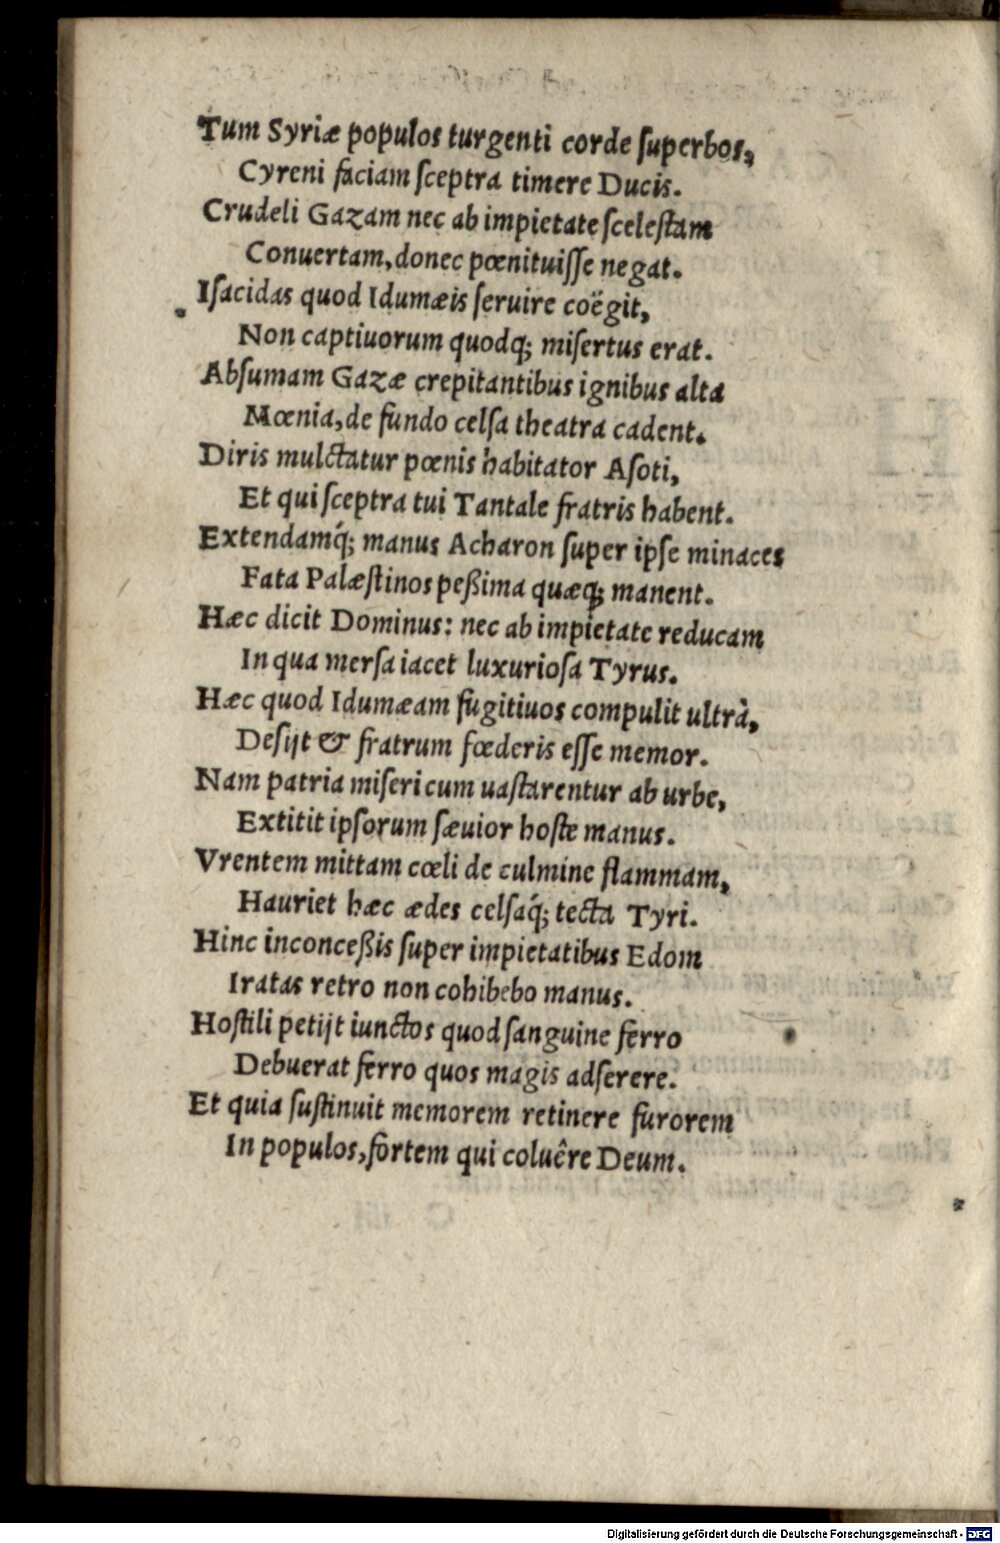 Tum Syriæ populos turgenti corde ſuperbos,
Cyreni faciam ſceptra timere Ducis.
Crudeli Gazam nec ab impietate ſceleſtam
Conuertam, donec pœnituiſſe negat.
Iſacidas quod Idumæis ſeruire coëgit,
Non captiuorum quodq; miſertus erat.
Abſumam Gazæ crepitantibus ignibus alta
Mœnia, de fundo celſa theatra cadent.
Diris mulctatur pœnis habitator Aſoti,
Et qui ſceptra tui Tantale fratris habent.
Extendamq́; manus Acharon ſuper ipſe minaces
Fata Palæſtinos peßima quæq; manent.
Hæc dicit Dominus: nec ab impietate reducam
In qua merſa iacet luxurioſa Tyrus.
Hæc quod Idumæam fugitiuos compulit ultrà,
Deſijt & fratrum fœderis eſſe memor.
Nam patria miſeri cum uaſtarentur ab urbe,
Extitit ipſorum ſæuior hoſte manus.
Vrentem mittam cœli de culmine flammam,
Hauriet hæc ædes celſaq́; tecta Tyri.
Hinc inconceßis ſuper impietatibus Edom
Iratas retro non cohibebo manus.
Hoſtili petijt iunctos quod ſanguine ferro
Debuerat ferro quos magis adſerere.
Et quia ſuſtinuit memorem retinere furorem
In populos, fortem qui coluêre Deum.
Digitalisierung gefördert durch die Deutsche Forschungsgemeinschaft - DFG